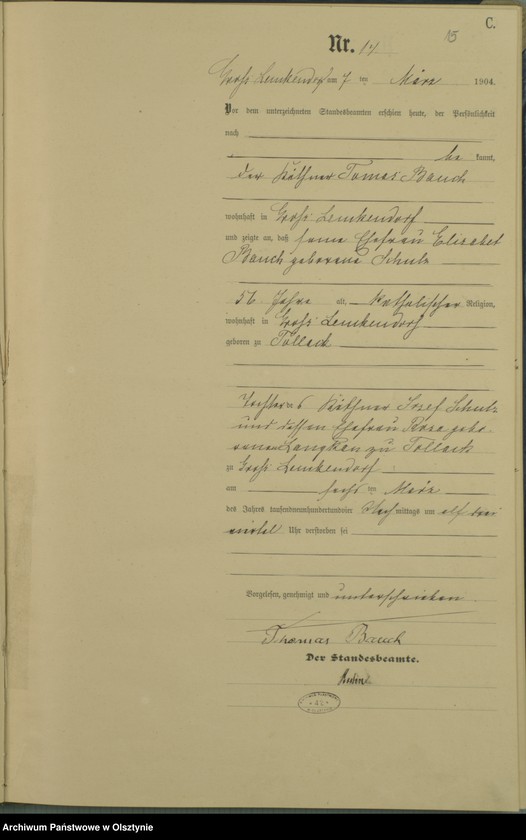 C.
15
Nr. 14
Gross Lemkendorf am 7 ten März 1904.
Vor dem unterzeichneten Standesbeamten erschien heute, der Persönlichkeit
nach
be kannt,
der Käthner Tomas Bauch
wohnhaft in Gross Lemkendorf
und zeigte an, daß seine Ehefrau Elisabet
Bauch geborene Schulz
56 Jahre alt, Katholischer Religion,
wohnhaft in Gross Lemkendorf
geboren zu Tollack
Tochter des Käthner Josef Schulz
und dessen Ehefrau Rosa gebo-
rene Langkau zu Tollack
zu Gross Lemkendorf
am sechs ten März
des Jahres tausendneunhundertundvier Nachmittags um elf drei
viertel Uhr verstorben sei
Vorgelesen, genehmigt und unterschrieben
Thomas Bauch
Der Standesbeamte.
Archiwum Państwowe w Olsztynie